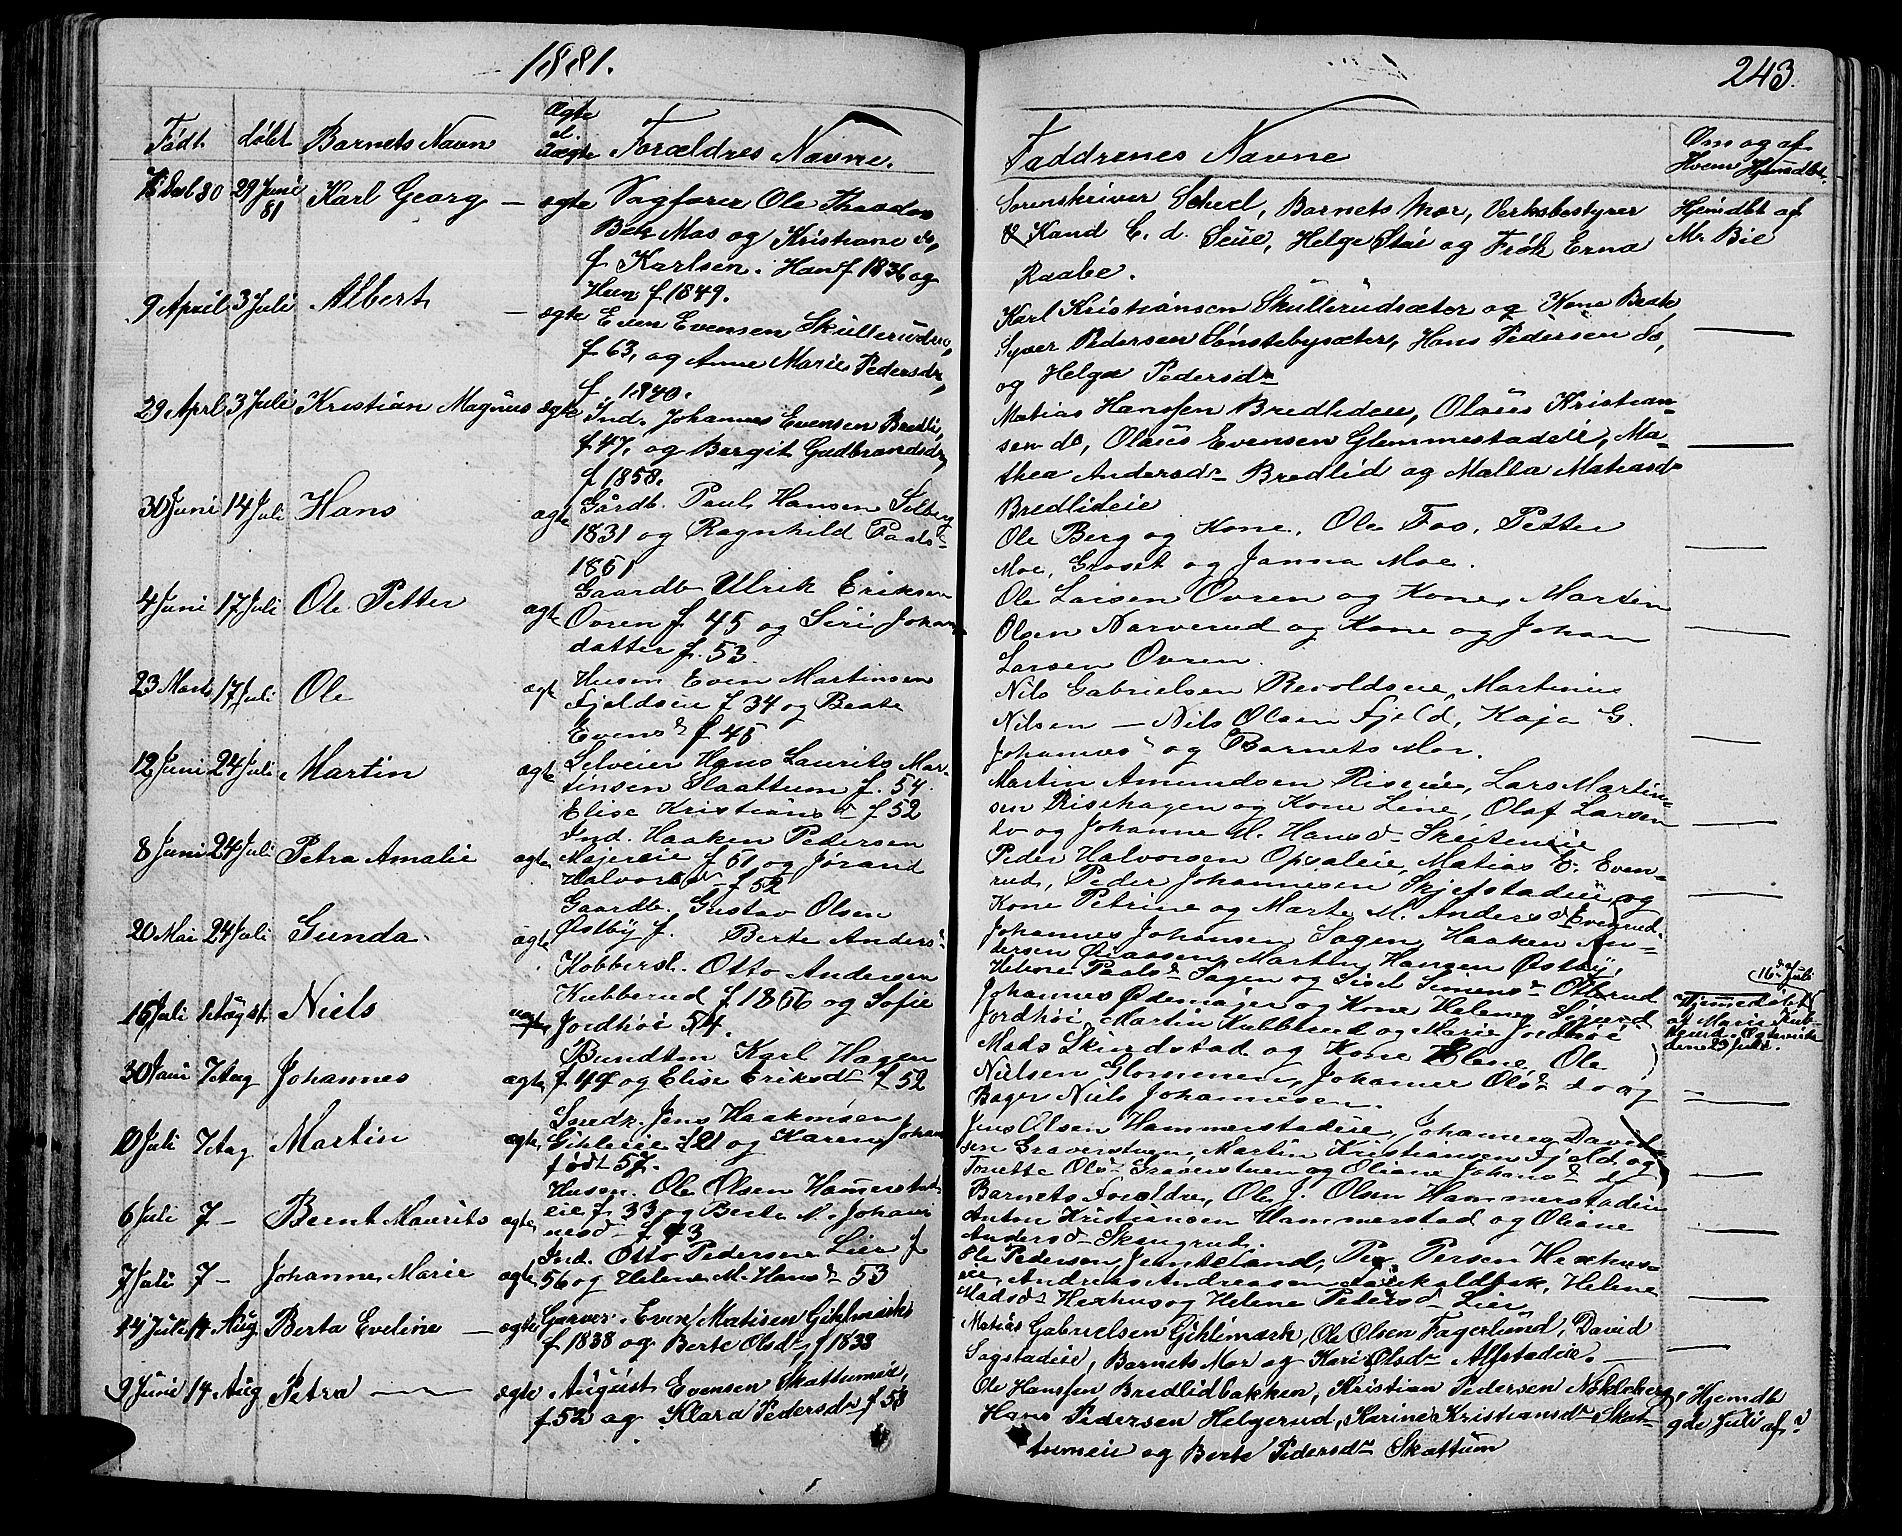 1881.
243.
Født døbt Barnets Navn Ægte el. Uægte Forældres Navne.
Faddrenes Navne
Om og af Hvem Hjemdbt.
Decb 80 29 Juni 81 Karl Georg — ægte Sagfører Ole Theodor
Mos og Kristiane
f Karlsen. Han f 1836 og
Hun f 1849.
Sorenskriver Scheel, Barnets Mor, Verksbestyrer
Kand E. d. Seüe, Helge Stai og Frøk Erna
Raabe.
Hjemdbt af
Mr. Bie
9 April 3 Juli Albert — ægte Even Evensen Skullerudeie,
f 63, og Anne Marie Pedersdr,
f. 1840.
Karl Kristiansen Skullerudsæter og Kone Beate
Syver Pedersen Tønstebysæter, Hans Pedersen do,
og Helga Pedersdr
29 Aprl 3 Juli Kristian Magnus ægte Ind. Johannes Evensen Bredlie,
f 47, og Bergit Gudbrandsdr,
f 1858.
Matias Hanssen Bredlideie, Olaus Kristian-
sen do, Olaus Evensen Glemmestadeie, Ma-
thea Andersdr Bredlid og Malla Matiasdr
Bredlideie
30 Juni 14 Juli Hans ægte Gårdb. Paul Hansen Solberg
1831 og Ragnhild Paals
1851
Ole Berg og Kone, Ole Fos, Petter
Moe, Groset og Janna Moe.
4 Juni 17 Juli Ole Petter ægte Gaardb Ulrik Eriksen
Øvren f. 45 og Siri Johan
datter f. 53.
Ole Larsen Øvren og Kone, Martin
Olsen Narverud og Kone og Johan
Larsen Øvren.
23 Mars 17 Juli Ole ægt Husm Even Martinsen
Fjeldseie f 34 og Beate
Evensd f 45
Nils Gabrielsen Revoldseie, Martinus
Nilsen — Nils Olsen Fjeld, Kaja G.
Johannesd og Barnets Mor.
12 Juni 24 Juli Martin ægte Selveier Hans Laurits Mar-
tinsen Slaattum f. 54.
Elise Kristiansd f 52
Martin Amundsen Riseeie, Lars Martin-
sen Risehagen og Kone Lene, Olaf Larsen
do og Johanne M. Hansd Skeiteneie
8 Juni 24 Juli Petra Amalie ægte Ind. Haaken Pedersen
Majereie f 51 og Jørand
Halvorsd f 52
Peder Halvorsen Opsaleie, Matias E. Even-
rud, Peder Johannesen Skjefstadeie og
Kone Petrine og Marte M. Andersd Evenrud.
20 Mai 24 Juli Gunda ægte Gaardb. Gustav Olsen
Østby f. Berte Andersd
Johannes Johansen Sagen, Haaken An-
dersen Østby,
Helene Paalsd Sagen og Sisel Simensd Otterud
15 Juli 1 August Niels Kobbersl. Otto Andersen
Kubberud f 1856 og Sofie
Jordhøi 54.
Johannes Ødemajer og Kone Helene, Sigurd
Jordhøi, Martin Kubberud og Marie Jordhøi
16de Juli
Hjemmedøbt
af Marie Kub-
berud.
30 Juni 7 Aug Johannes ægte Bundtm Karl Hagen
f 47 og Elise Eriksd f 52
Mads Skindstad og Kone Elene, Ole
Nielsen Glommenen, Johanne Olsd do og
Bager Niels Johannesen.
10 Juli 7 Aug Martin ægte Snedk. Jens Haakonsen
Gihleeie f 21 og Karen Johan
født 57.
Jens Olsen Hammerstadeie, Johannes David-
sen Graverstuen, Martin Kristiansen Fjeld og
Tonette Olsd Graverstuen og Oliane Johansd do
6 Juli 7 — Bernt Maurits ægte Husm. Ole Olsen Hammerstad
eie f 33 og Berte M. Johan
nesd f 43
Barnets Forældre, Ole J. Olsen Hammerstadeie
Anton Kristiansen Hammerstad og Oliane
Andersd Skøngrud.
7 Juli 7 — Johanne Marie ægte Ind. Otto Pedersen Lier f
56 og Helene M. Hansd 53
Ole Pedersen, Per Persen Hexhus-
eie, Andreas Andreasen, Helene
Madsdr Hexhus og Helene Petersd Lier
14 Juli 14 Aug Berta Eveline — ægte Garver Even Matisen Gihlmark
f 1838 og Berte Olsdr, f 1838
Matias Gabrielsen Gihlemark, Ole Olsen Fagerlund, David
Sogstadeie, Barnets Mor og Kari Olsdr Alfstadeie.
9 Juni 14 Aug Petra — ægte August Evensen Skattumeie,
f 52 og Klara Pedersdr f 58
Ole Hanssen Bredlidbakken, Kristian Pedersen Nokleberg,
Hans Pedersen Helgerud, Karine Kristiansdr Skat-
tumeie og Berte Pedersdr Skattum
Hjemdb
9de Juli af ?